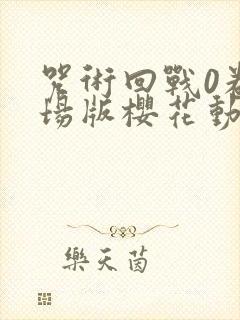 咒術回戰0
場版櫻花動
樂天茵